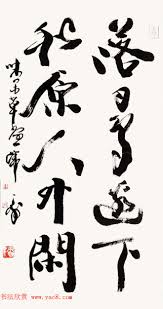 落日鳥邊下
秋原人外閑
书法欣赏
www.yac8.com